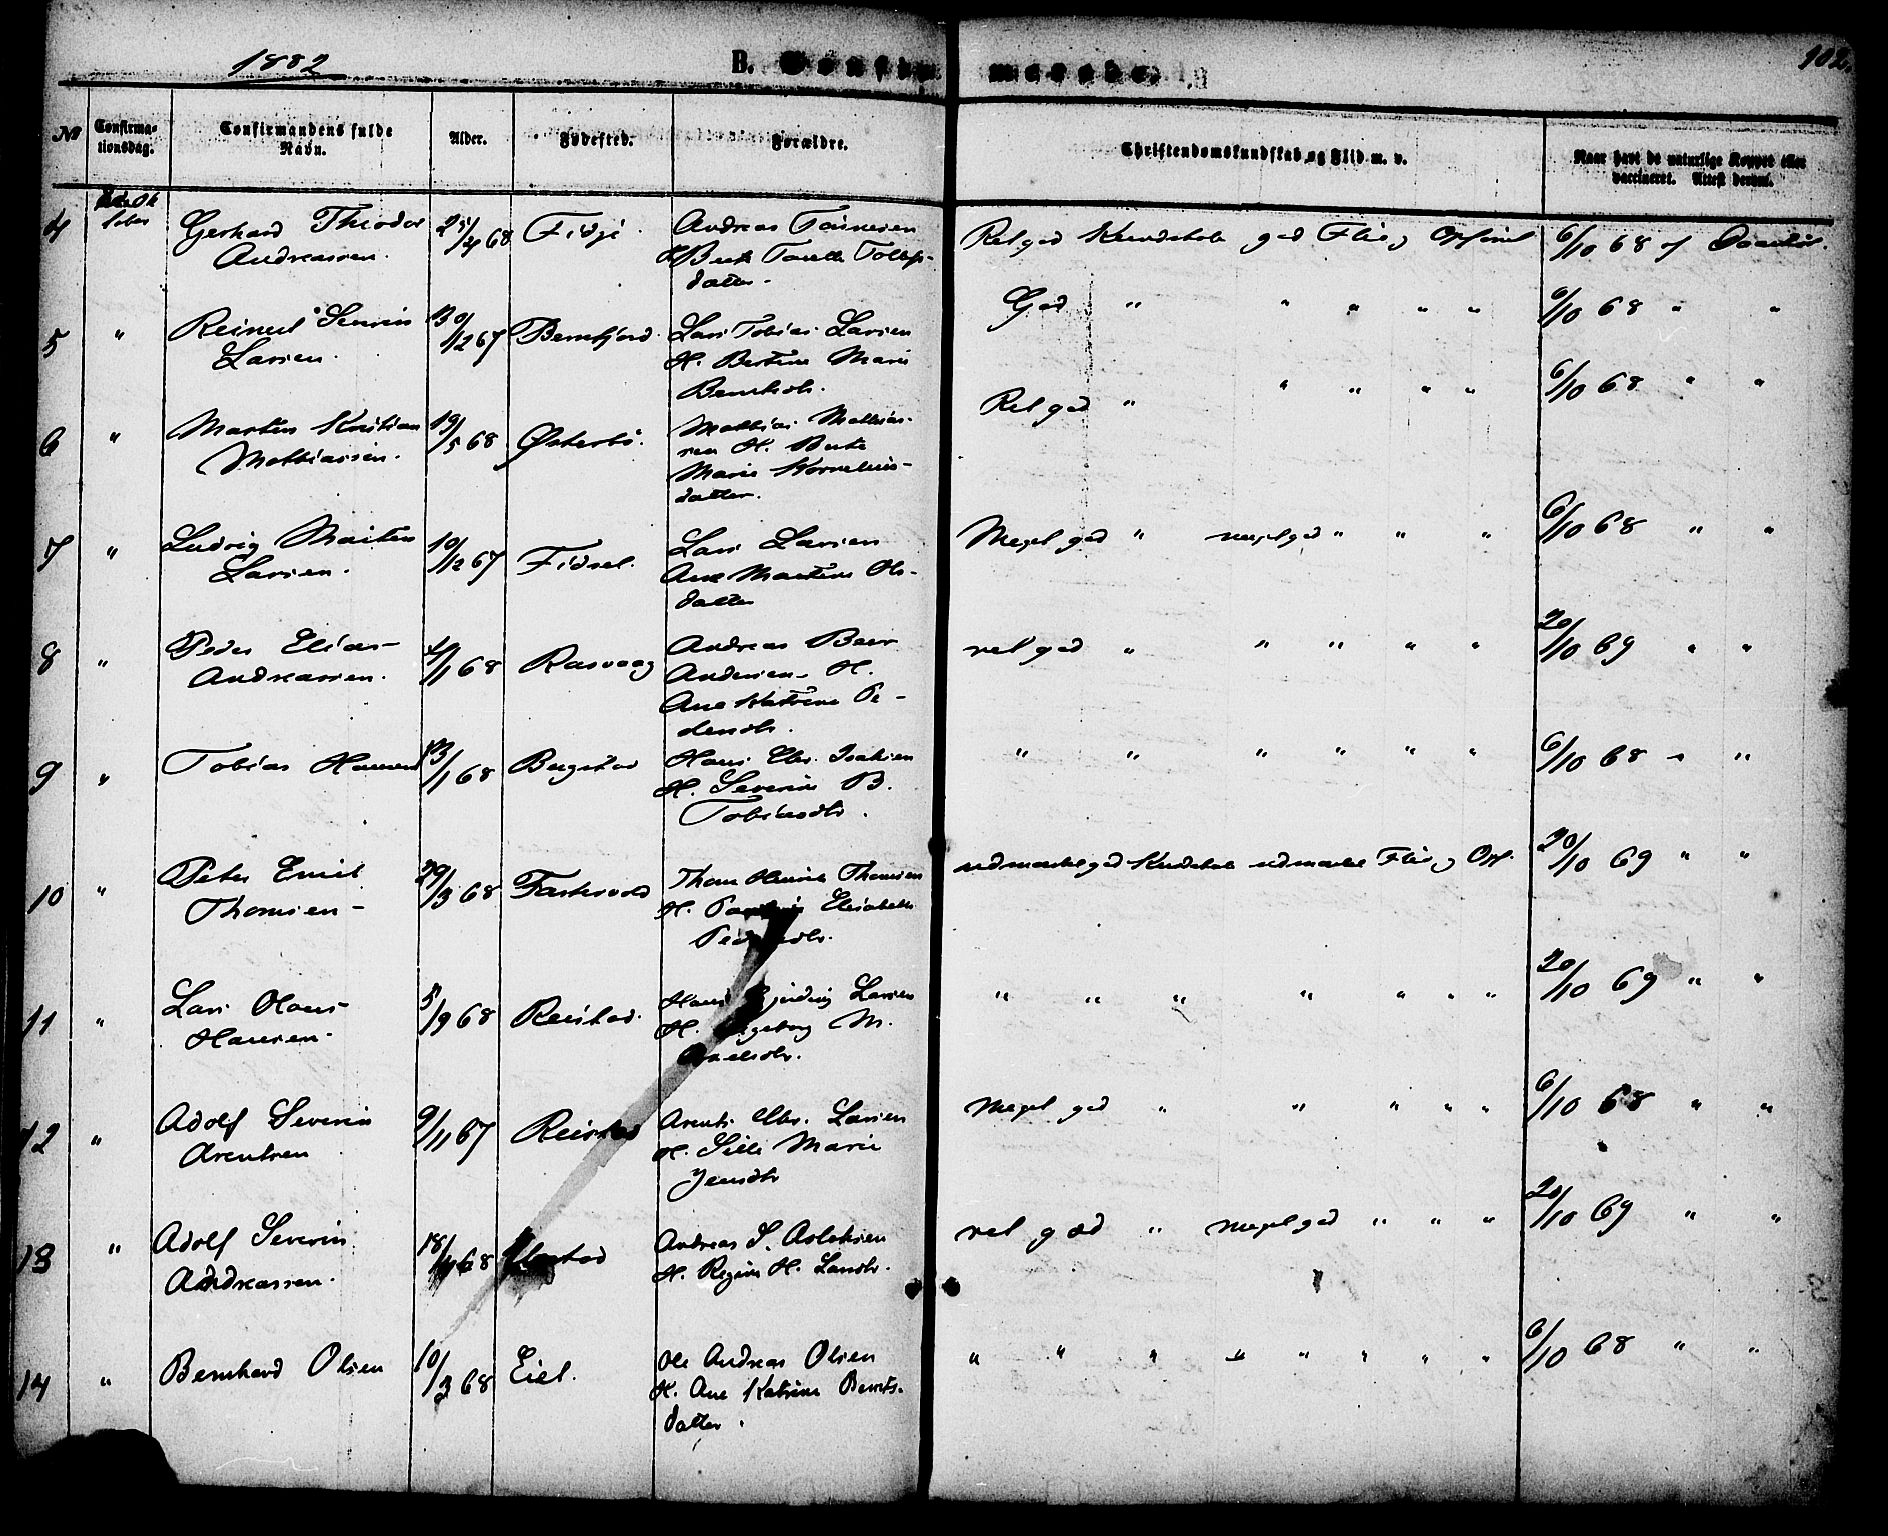 1882
B. Confirmerede.
102.
No
Confirma-
tionsdag.
Confirmandens fulde
Navn.
Alder.
Fødested.
Forældre.
Christendomskundskab og Flid m. v.
Naar havt de naturlige Kopper eller
vaccineret. Attest derom.
4 Ok
tober Gerhard Theodor 25/4 68 Fidje. Andreas Tønnesen
Andreassen. H. Berte Tollefs-
datter.
Rel god Kundskab god Flid og Opførsel 6/10 68 af
5 " Reinert Severin 30/12 67 Berrefjord. Lars Tobias Larsen
Larsen. H. Bertine Marie
Berntsdtr.
God " " " " " 6/10 68 " "
6 " Martin Kristian 19/5 68 Østerbø. Mathias Mathias-
Mathiassen. sen H. Berte
Marie Kornelius-
datter.
Rel god " " " " " 6/10 68 " "
7 " Ludvig Martin 10/12 67 Fidsel. Lars Larsen
Larsen. Ane Martine Ols-
datter
Meget god " meget god " " " 6/10 68 " "
8 " Peder Elias 4/1 68 Rasvaag Andreas Beer
Andreassen. Andersen. H.
Ane Katrine Pe-
dersdtr.
rel god " " " " " 20/10 69 " "
9 " Tobias Hansen 13/1 68 Bugstad Hans Isaksen
H. Severine B.
Tobiasdtr.
" " " " " " 6/10 68 " "
10 " Peter Emil 29/3 68 Thomsen
Thomsen H. Elisabeth
udmærket god Kundskab udmærket Flid og Opf. 20/10 69 " "
11 " Lars Hans 5/9 68 Reistad. Hans Larsen
Hansen. H. Ingeborg M.
" " " " " " " 20/10 69 " "
12 " Adolf Severin 9/11 67 Reistad Arent Larsen
Arentsen H. Sille Marie
Jensdtr
Meget god " " " " " 6/10 68 " "
13 " Adolf Severin 18/4 68 Andreas S. Aslaksen
Andreassen. H. Regine H. Larsdtr.
rel god " Meget god " " " 20/10 69 " "
14 " Bernhard Olsen 10/3 68 Eiel. Ole Andreas Olsen
H. Ane Katrine Bernts-
datter.
" " " " " " " " 6/10 68 " "